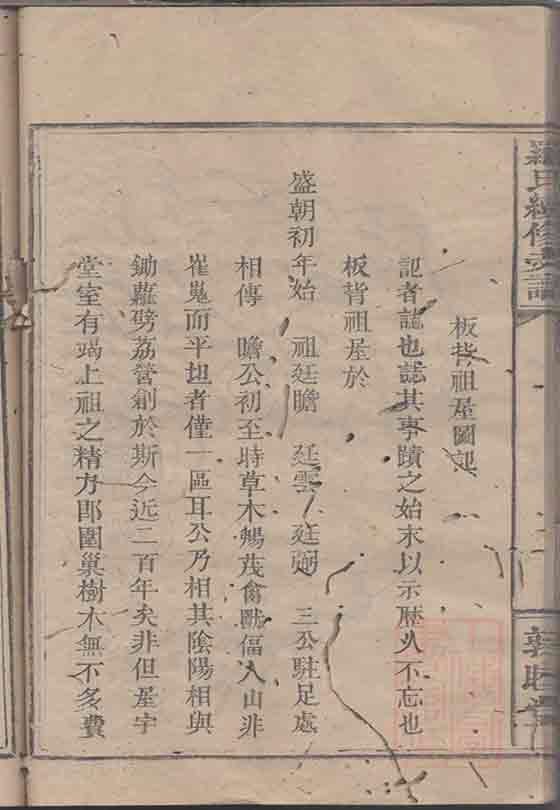 羅氏續修支譜
板背祖屋圖記
記者誌也誌其事蹟之始末以示歷久不忘也
板背祖屋於
盛朝初年始 祖廷瞻 廷雲 廷弼 三公駐足處
相傳 瞻公初至時草木暢茂禽獸偪人山非
崔嵬而平坦者僅一區耳公乃相其陰陽相與
鋤蘿劈荔營創於斯今近二百年矣非但屋宇
堂室有竭上祖之精力即園巢樹木無不多費
敦睦堂